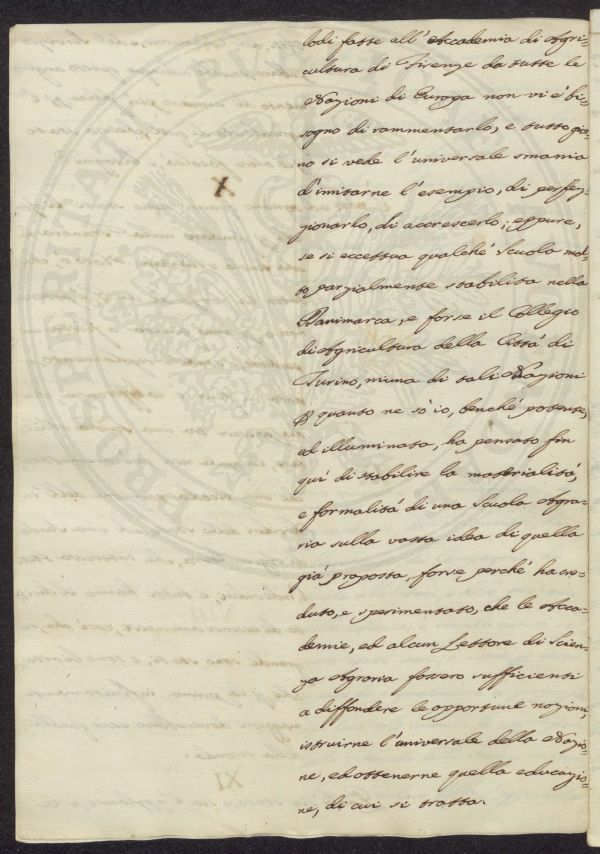 lodi fatte all'Accademia di Agri=
cultura di Firenze da tutte le
Nazioni di Europa non vi è bi=
sogno di rammentarlo, e tutto gior=
no si vede l'universale smania
d'imitarne l'esempio, di perfez=
zionarlo, di accrescerlo; eppure,
se si eccettua qualchè Scuola mol=
to parzialmente stabilita nella
Danimarca, e forse il Collegio
di Agricultura della Città di
Turino, niuna di tali Nazioni
quanto ne sò io, benchè potente,
ed illuminata, ha pensato fin
quì di stabilire la materialità,
e formalità di una Scuola Agra=
ria sulla vasta idea di quella
già proposta, forse perchè ha cre=
duto, e sperimentato, che le Acca=
demie, ed alcun Lettore di Scien=
za Agraria fossero sufficienti
a diffondere le opportune nozioni,
istruirne l'universale della Nazio=
ne, ed ottenerne quella educazio=
ne, di cui si tratta.
X
XI
PROSPERITATI PUBL